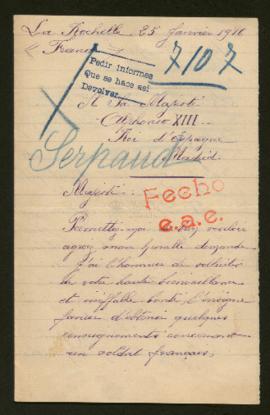 La Rochelle 25 Janvier 1916
France
7107
Pedir informes
Que se hace así
Devolver
A Sa Majesté
Alphonse XIII
Roi d'Espagne
Madrid
Serpaud
Majesté
Fecho
e.a.e.
Permettez-moi de
agréer mon humble demande
J'ai l'honneur de solliciter
de votre haute bienveillance
et ineffable bonté l'insigne
faveur d'obtenir quelques
renseignements concernant
un soldat français,